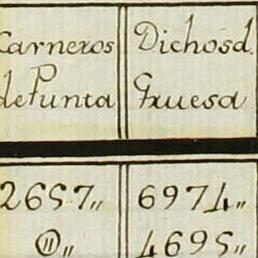 Carneros Dichosd.
de Punta Gruesa
2657„ 6974„
0„ 4695„